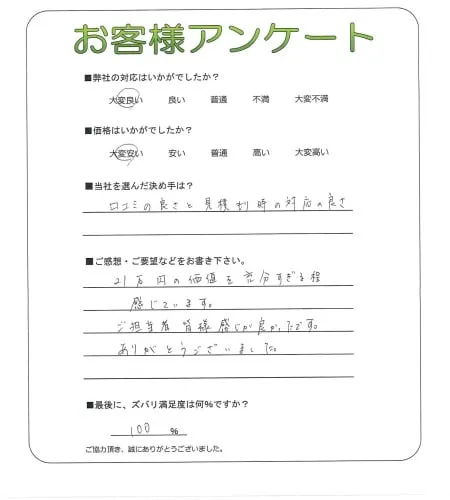 お客様アンケート
■弊社の対応はいかがでしたか？
大変良い 良い 普通 不満 大変不満
■価格はいかがでしたか？
大変安い 安い 普通 高い 大変高い
■当社を選んだ決め手は？
口コミの良さと見積り時の対応の良さ
■ご感想・ご要望などをお書き下さい。
21万円の価値を充分すぎる程
感じています。
ご担当者皆様感じが良かったです。
ありがとうございました。
■最後に、ズバリ満足度は何%ですか？
100 %
ご協力頂き、誠にありがとうございました。